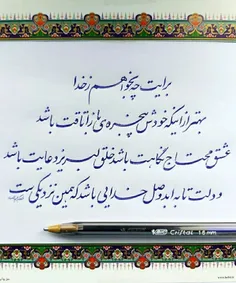 برایت چه بخواهم ز خدا
بهتر از اینکه خودش پنجره‌ی باز اتاقت باشد
عشق محتاج نگاهت باشد خلق لبریز دعایت باشد
و دلت تا به ابد وصل خدایی باشد که همین نزدیکی‌ست
Cristal 1.6 mm